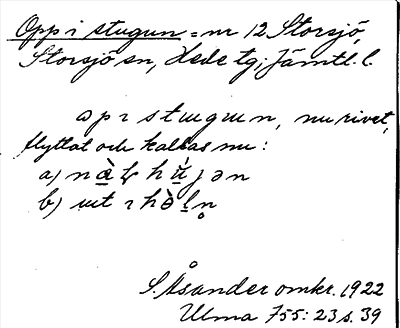 Opp i stugun = nr 12 Storsjö,
Storsjö sn, Hede tg; Jämtl. l.
ɷp ɩ stɯgɯn, nu rivet,
flyttat och kallas nu:
a)
b) ɯt ɩ
S. Åsander omkr. 1922
Ulma 755: 23 s. 39